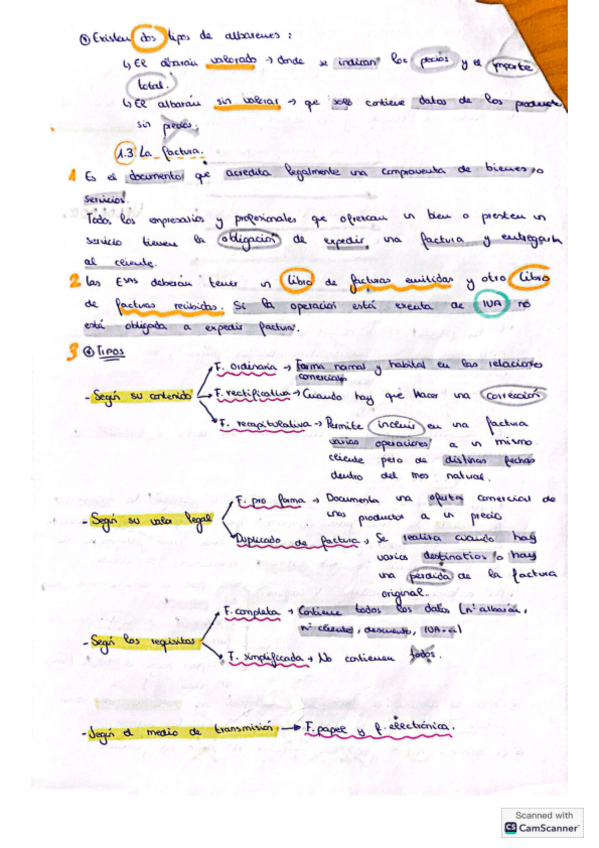 ④ Existen dos tipos de albaranes :
↳ El albarán valorado → donde se indican los precios y el importe
total.
↳ El albarán sin valorar → que solo contiene datos de los productos
sin precios.
1.3 La factura.
1 Es el documento que acredita legalmente una compraventa de bienes o
servicios.
Todos los empresarios y profesionales que ofrezcan un bien o presten un
servicio tienen la obligación de expedir una factura y entregarla
al cliente.
2 Las Esas deberán tener un libro de facturas emitidas y otro libro
de facturas recibidas. Si la operación está exenta de IVA no
está obligada a expedir factura.
3 TIPOS
- Según su contenido
F. ordinaria → Forma normal y habitual en las relaciones
comerciales
F. rectificativa → Cuando hay que hacer una corrección
F. recapitulativa → Permite incluir en una factura
varias operaciones a un mismo
cliente pero de distintas fechas
dentro del mes natural.
- Según su valor legal
F. pro forma → Documenta una oferta comercial de
unos productos a un precio
Duplicado de factura → Se realiza cuando hay
varios destinatarios o hay
una pérdida de la factura
original.
- Según los requisitos
F. completa → Contiene todos los datos (nº albarán,
nº cliente, descuento, IVA...)
F. simplificada → No contienen todos.
- Según el medio de transmisión → F. papel y f. electrónica.
Scanned with
CS CamScanner